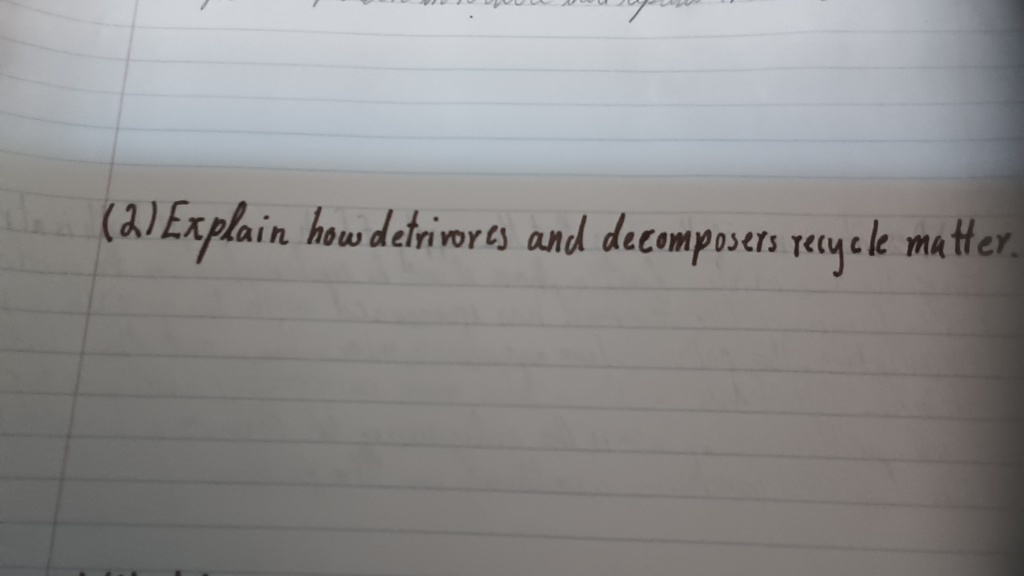 (2) Explain how detrivores and decomposers recycle matter.